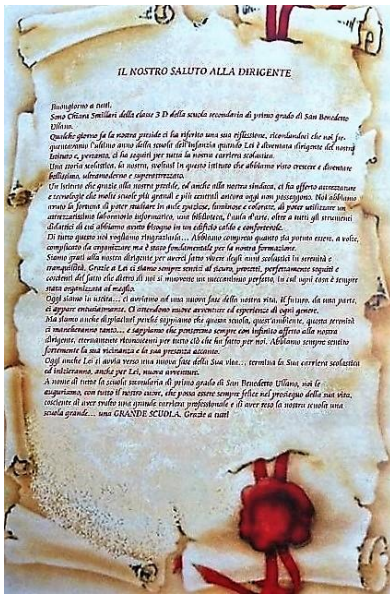 IL NOSTRO SALUTO ALLA DIRIGENTE
Buongiorno a tutti.
Sono Chiara Smillari della classe 3 D della scuola secondaria di primo grado di San Benedetto
Ullano.
Qualche giorno fa la nostra preside ci ha riferito una sua riflessione, ricordandoci che noi fre-
quentavamo l'ultimo anno della scuola dell'infanzia quando Lei è diventata dirigente del nostro
Istituto e, pertanto, ci ha seguiti per tutta la nostra carriera scolastica.
Una storia scolastica, la nostra, svoltasi in questo istituto che abbiamo visto crescere e diventare
bellissimo, ultramoderno e superattrezzato.
Un Istituto che grazie alla nostra preside, ed anche alla nostra sindaca, ci ha offerto attrezzature
e tecnologie che molte scuole più grandi e più centrali ancora oggi non posseggono. Noi abbiamo
avuto la fortuna di poter studiare in aule spaziose, luminose e colorate, di poter utilizzare un
attrezzatissimo laboratorio informatico, una biblioteca, l'aula d'arte, oltre a tutti gli strumenti
didattici di cui abbiamo avuto bisogno in un edificio caldo e confortevole.
Di tutto questo noi vogliamo ringraziarla... Abbiamo compreso quanto sia potuto essere, a volte,
complicato da organizzare ma è stato fondamentale per la nostra formazione.
Siamo grati alla nostra dirigente per averci fatto vivere degli anni scolastici in serenità e
tranquillità. Grazie a Lei ci siamo sempre sentiti al sicuro, protetti, perfettamente seguiti e
coscienti del fatto che dietro di noi si muovesse un meccanismo perfetto, in cui ogni cosa è sempre
stata organizzata al meglio.
Oggi siamo in uscita... ci avviamo ad una nuova fase della nostra vita. Il futuro, da una parte,
ci appare entusiasmante. Ci attendono nuove avventure ed esperienze di ogni genere.
Ma siamo anche dispiaciuti perché sappiamo che questa scuola, quest'ambiente, questa serenità
ci mancheranno tanto... e sappiamo che penseremo sempre con infinito affetto alla nostra
dirigente, eternamente riconoscenti per tutto ciò che ha fatto per noi. Abbiamo sempre sentito
fortemente la sua vicinanza e la sua presenza accanto.
Oggi anche Lei si avvia verso una nuova fase della Sua vita... termina la Sua carriera scolastica
ed inizieranno, anche per Lei, nuove avventure.
A nome di tutta la scuola secondaria di primo grado di San Benedetto Ullano, noi le
auguriamo, con tutto il nostro cuore, che possa essere sempre felice nel prosieguo della sua vita,
cosciente di aver svolto una grande carriera professionale e di aver reso la nostra scuola una
scuola grande... una GRANDE SCUOLA. Grazie a tutti